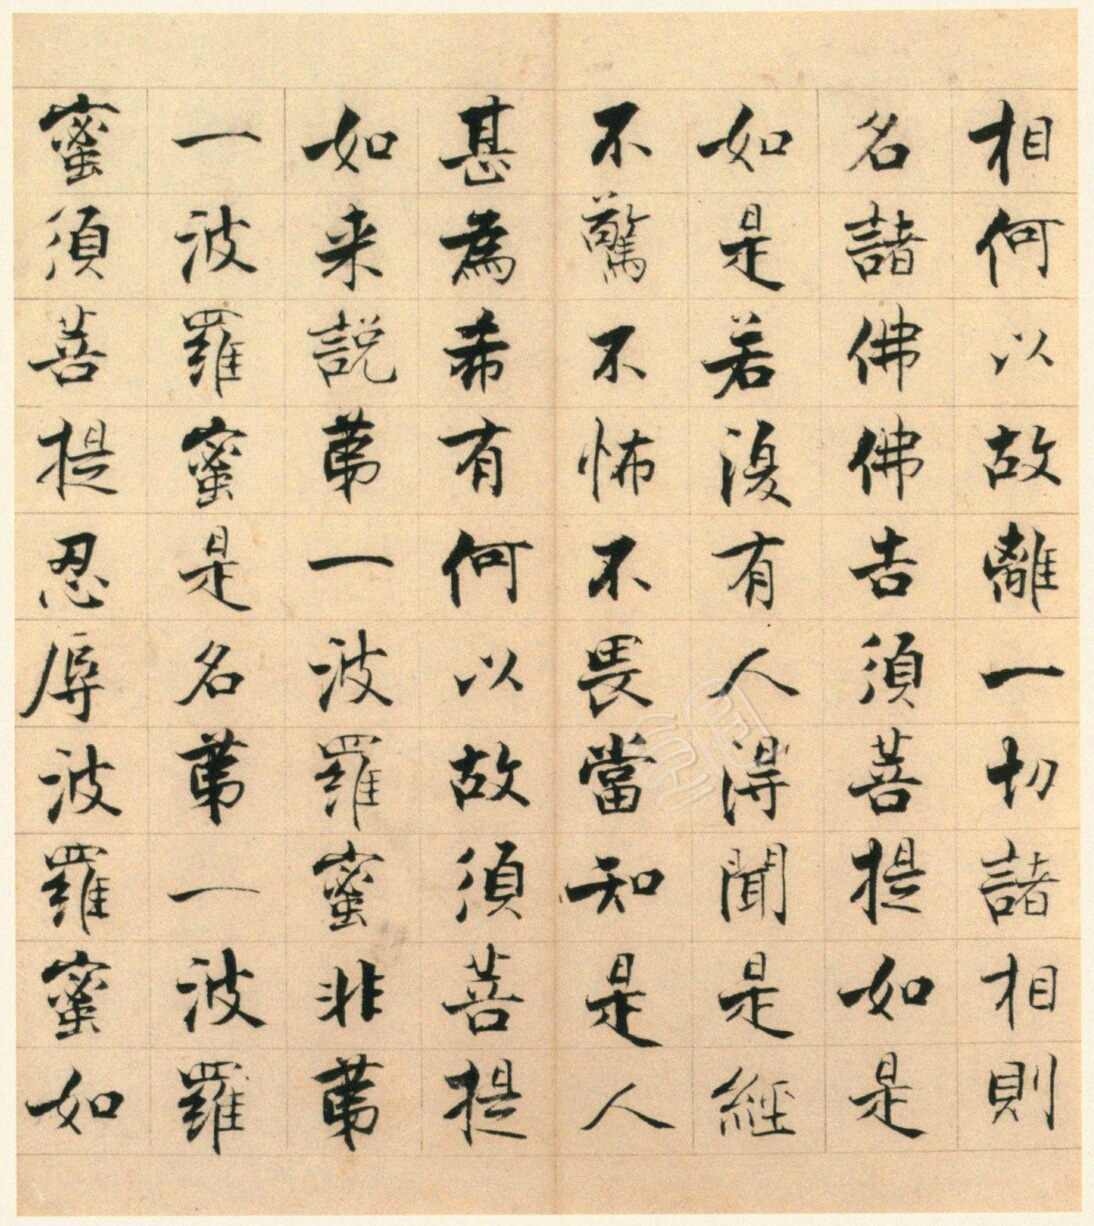 相何以故離一切諸相則
名諸佛佛告須菩提如是
如是若復有人得聞是經
不驚不怖不畏當知是人
甚為希有何以故須菩提
如来說第一波羅蜜非第
一波羅蜜是名第一波羅
蜜須菩提忍辱波羅蜜如